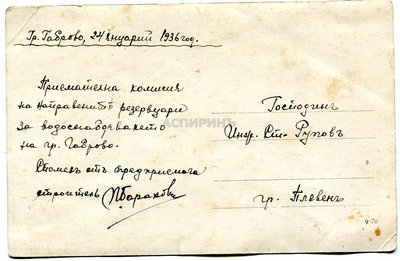 Гр. Габрово, 24 януарий 1936 год.
Приемателна комисия
на направенитѣ резервуари
за водоснабдяването
на гр. Габрово.
Споменъ отъ предприемача
строитель ПБараков
АСПИРИНЪ
Господинъ
Инж. Ст. Руповъ
гр. Плевенъ
9/70